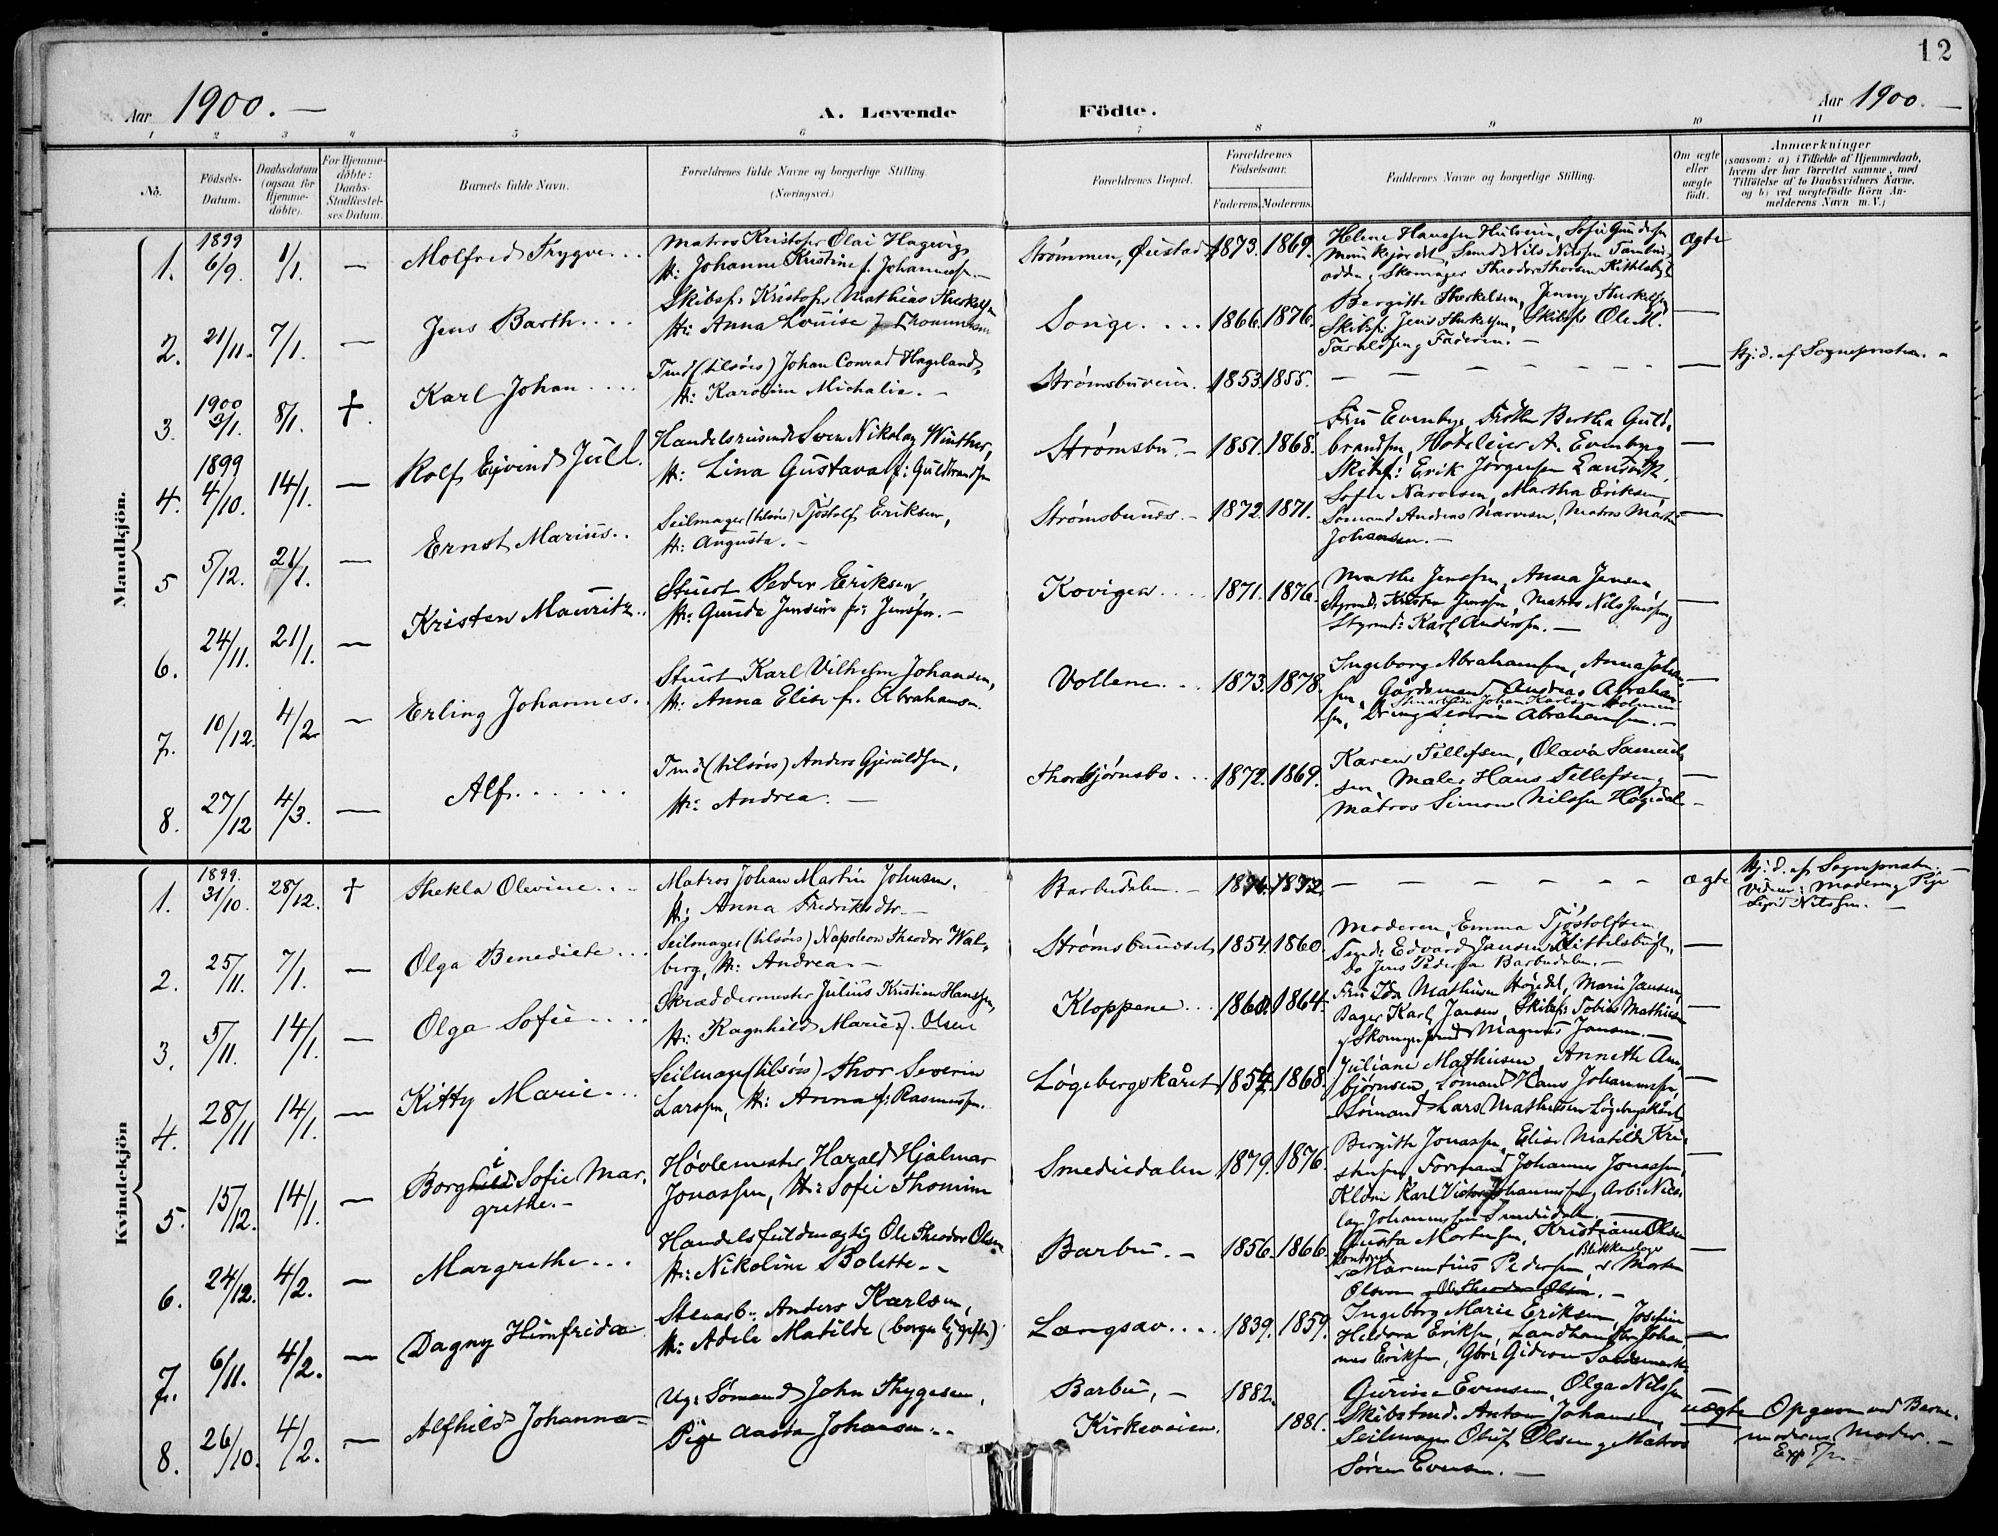 12
Aar 1900. —
A. Levende Födte.
Aar 1900. —
1 2 3 4 5 6 7 8 9 10 11
No.
Födsels-Datum.
Daabsdatum (ogsaa for Hjemme-döbte).
For Hjemme-döbte: Daabs-Stadfæstel-ses Datum.
Barnets fulde Navn.
Forældrenes fulde Navne og borgerlige Stilling.
(Næringsvei.)
Forældrenes Bopæl.
Forældrenes Födselsaar.
Faderens. Moderens.
Faddernes Navne og borgerlige Stilling.
Om ægte eller uægte födt.
Anmærkninger
(saasom: a) i Tilfælde af Hjemmedaab, hvem der har forrettet samme, med Tilföielse af to Daabsvidners Navne, og b) ved uægtefödte Börn An-melderens Navn m. V.)
Mandkjön.
1. 1899 6/9. 1/1. — Molfred Trygve...
Matros Kristofer Olai Hagevig,
H: Johanne Kristine f. Johannesen —
Strømmen, Øiestad 1873. 1869.
Helene Hansen
ægte
2. 21/11. 7/1. — Jens Barth....
Skibsf: Kristofer Mathias Therkelsen
H: Anna Louise f. Thommesen
Songe.... 1866. 1876.
Bergitte Therkelsen, Jenny Therkelsen
Skibsf: Jens Therkelsen, Skibsfr Ole M.
Faderen. —
—
3. 1900 3/1. 8/1. † Karl Johan....
Tmd (tilsøis) Johan Conrad Hageland,
H: Karoline Michalia. —
Strømsbuveien. 1853. 1855.
— — — — — — —
—
Hj. d. af Sognepresten. —
4. 1899 4/10. 14/1. — Rolf Ejvind Jull.
Handelsreisende Sven Nikolay Winther,
H: Lina Gustava f: Guldbrandsen
Strømsbu — 1851. 1868.
Fru Evenbye, Frøken Bertha Guld-
brandsen, Hoteleier A. Evenbye
Skibsf: Erik Jørgensen
—
5 5/12. 21/1. — Ernst Marius..
Seilmager (tilsøis) Tjøstolf Eriksen,
H: Augusta. —
Strømsbunes. — 1872. 1871.
Sofie Narvesen, Martha Eriksen,
Sømand Andreas Narvesen, Matros Martin
Johansen. —
—
6. 24/11. 21/1. — Kristen Mauritz..
Stuert Peder Eriksen,
H: Gunda Jensine f: Jensen. —
Kovigen.... 1871. 1876.
Marthe Jensen, Anna Jensen,
Styrmd: Kristen Jensen, Matros Nils Jensen,
Styrmd: Karl Andersen. —
—
7. 10/12. 4/2. — Erling Johannes..
Stuert Karl Vilhelm Johansen,
H: Anna Elise f. Abrahamsen.
Vollene... 1873. 1878.
Ingeborg Abrahamsen, Anna Johan-
sen, Gårdsmand Andreas Abraham-
sen, Abrahamsen. —
—
8. 27/12 4/3. — Alf......
Tmd (tilsøis) Anders Gjeruldsen,
H: Andrea. —
Thorbjørnsbo... 1872. 1869.
Karen Tellefsen, Olava Samuel-
sen, Maler Hans Tellefsen,
Matros Simon Nilsen Høgedal —
—
Kvindekjön
1. 1899. 31/10. 28/12. † Thekla Olevine....
Matros Johan Martin Johnsen,
H: Anna Fredriksdtr. —
Barbudalen. — 1872.
— — — — — — —
ægte
Hj. d. af Sognepresten.
Vidner: Moderen, Pige
Sigrid Nilsen. —
2. 25/11. 7/1. — Olga Benedicte...
Seilmager (tilsøis) Napoleon Theodor Wal-
berg, H: Andrea. —
Strømsbunæset 1854. 1860.
Moderen, Emma Tjøstolfsen,
Tmd: Edvard Jansen Kittelsbugt,
Do Jens Pedersen Barbudalen. —
—
3. 5/11. 14/1. — Olga Sofie....
Skræddermester Julius Kristian Hansen,
H: Ragnhild Marie f. Olsen
Kloppene... 1860. 1864.
Fru Ida Mathisen Høgedal, Marie Jansen,
Bager Karl Jansen, Skibsf: Tobias Mathisen
Magnus Jansen. —
—
4. 28/11 14/1. — Kitty Marie...
Seilmager (tilsøis) Thor Severin
Larsen, H: Anna f: Rasmussen.
Løgebergskåret 1854. 1868.
Juliane Mathisen, Annette Am-
bjørnsen, Sømand Hans Johannesen,
Sømand Lars Mathisen Løgebergskåret
—
5. 15/12. 14/1. — Borghild Sofie Mar-
grethe. —
Høvlemester Harald Hjalmar
Jonassen, H: Sofie Thomine
Smededalen 1879. 1876.
Bergitte Jonassen, Elise Matilde Kri-
stensen, Formand Johannes Jonassen,
Karl Victor Johannessen, Arb: Nils
Johannessen Smededalen. —
—
6. 24/12. 4/2. — Margrethe...
Handelsfuldmægtig Ole Theodor Olsen
H: Nikoline Bolette. —
Barbu. — 1856. 1866.
Gusta Mortensen, Kristiane Olsen
Marentius Pedersen, Blikkenslager Morten
Olsen, Ole Theodor Olsen. —
—
7. 6/11. 4/2. — Dagny Himfrida
Stenarb.: Anders Karlsen,
H: Adele Matilde (borgerlig gifte)
Langsæv.... 1839. 1859.
Ingeborg Marie Eriksen, Josefine
Hedora Eriksen, Landhandler Johan-
nes Eriksen, Gideon
—
8. 26/10. 4/2. — Alfhild Johanna —
Ug: Sømand John Thygesen,
Pige Aasta Johansen..
Barbu, — 1882.
Kirkeveien. 1881.
Gurine Evensen, Olga Nilsen
Skibstmd. Anton Johansen,
Seilmager Oluf Olsen, Matros
Søren Evensen. —
uægte
Opgaven ved Barne-
moderens Moder. —